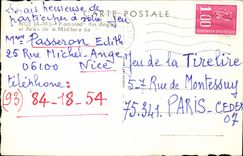 CARTE POSTALE
Je suis heureuse de
participer à votre Jeu
NICE (A.-M.) - La Promenade des Anglais
et Palais de la Méditerranée
Mme Passeron Edith
25 Rue Michel-Ange
06100 Nice
téléphone:
(93) 84-18-54
1,00
Jeu de la Tirelire
5-7 Rue de Montessuy
75.341. PARIS-CEDEX
07